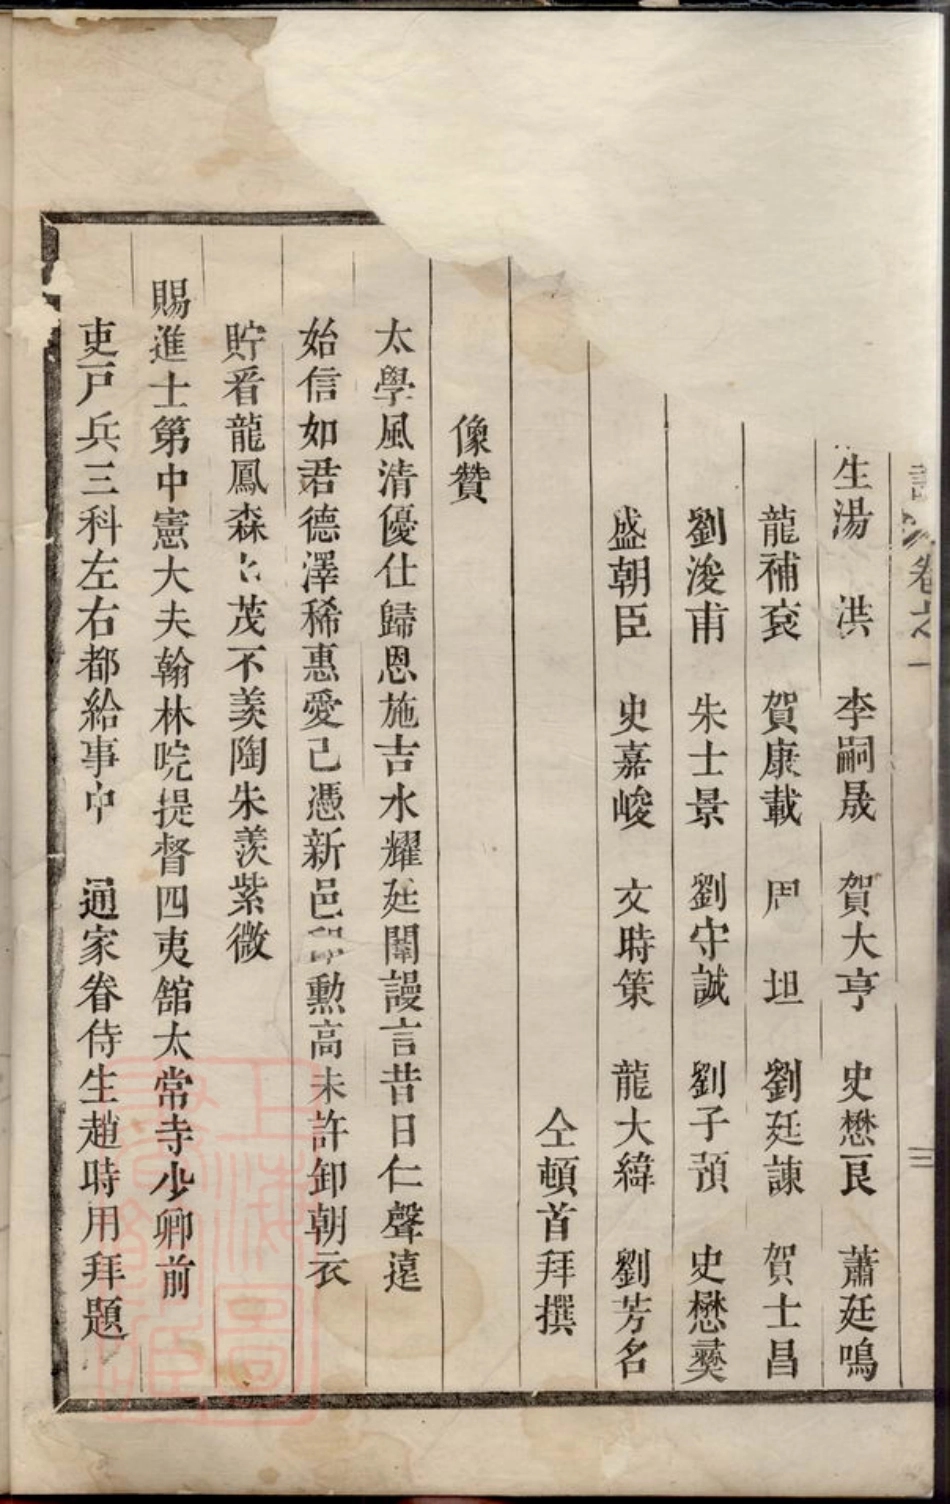 卷之一
三
生湯　洪　李嗣晟　賀大亨　史懋良　蕭廷鳴
龍補袞　賀康載　周　坦　劉廷諫　賀士昌
劉浚甫　朱士景　劉守誠　劉子預　史懋龑
盛朝臣　史嘉峻　文時策　龍大緯　劉芳名
仝頓首拜撰
像贊
太學風清優仕歸恩施吉水耀廷闈謾言昔日仁聲遠
始信如君德澤稀惠愛已憑新邑勳高未許卸朝衣
貯看龍鳳森〻茂不羨陶朱羨紫微
賜進士第中憲大夫翰林院提督四夷館太常寺少卿前
吏戸兵三科左右都給事中　通家眷侍生趙時用拜題
上海圖書館藏